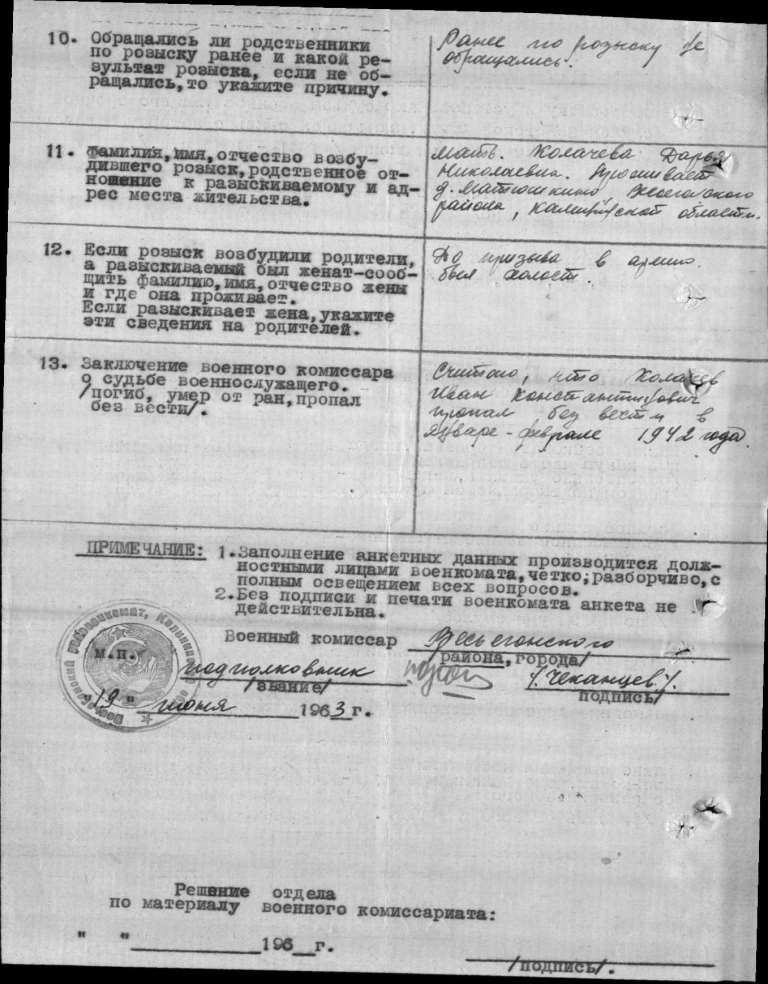 10. Обращались ли родственники
по розыску ранее и какой ре-
зультат розыска, если не об-
ращались, то укажите причину.
Ранее по розыску не
обращались.
11. Фамилия, имя, отчество возбу-
дившего розыск, родственное от-
ношение к разыскиваемому и ад-
рес места жительства.
Мать. Колачева Дарья
Николаевна. Проживает
д. Матюшкино Весьегонского
района, Калининской области.
12. Если розыск возбудили родители,
а разыскиваемый был женат-сооб-
щить фамилию, имя, отчество жены
и где она проживает.
Если разыскивает жена, укажите
эти сведения на родителей.
До призыва в армию
был холост.
13. Заключение военного комиссара
о судьбе военнослужащего.
/погиб, умер от ран, пропал
без вести/.
Считаю, что Колачев
Иван Константинович
пропал без вести в
январе - феврале 1942 года.
ПРИМЕЧАНИЕ: 1. Заполнение анкетных данных производится долж-
ностными лицами военкомата, четко, разборчиво, с
полным освещением всех вопросов.
2. Без подписи и печати военкомата анкета не
действительна.
Военный комиссар Весьегонского
района, города/
м.п. подполковник /Чеканцев/.
/звание/ подпись/
"19" июня 1963 г.
Решение отдела
по материалу военного комиссариата:
" " 196 г.
/подпись/.